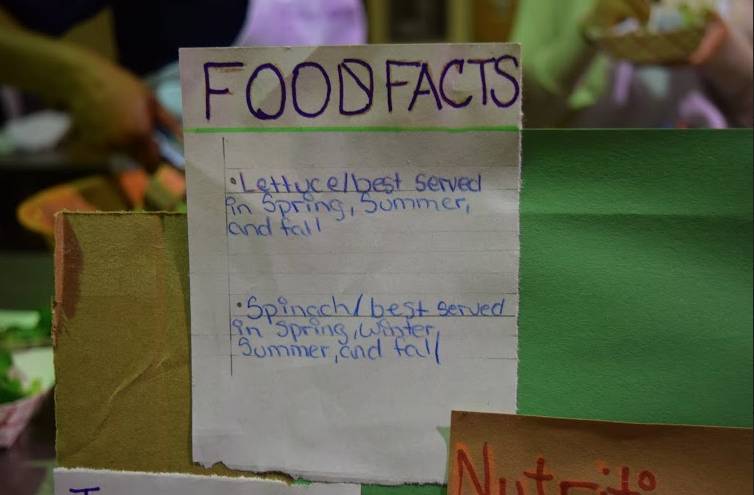 FOOD FACTS
• Lettuce/best served
in Spring, Summer,
and fall
• Spinach/best served
in Spring, Winter,
Summer, and fall